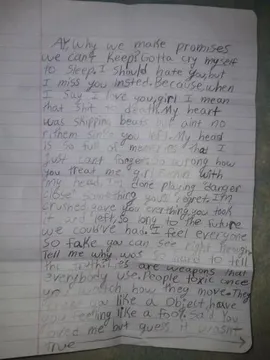 Ay, why we make promises
we cant keep. Gotta cry myself
to sleep. I should hate you, but
I miss you insted. Because, when
I say I love you, girl I mean
that shit to death. My heart
was skipping beats but aint no
rithem since you left. My head
is so full of memories that I
just cant forget so wrong how
you treat me girl
with my head. I'm done playing danger
close something you'll regret. I'm
crushed gave you everything you took
it and left, so long to the future
we could've had. I feel everyone
so fake you can see right through
Tell me why was so hard to tell
the truth lies are weapons that
everybody use. People toxic once
you watch how they move. They
you like a object, have
you feeling like a fool. said You
loved me but guess it wasn't
true